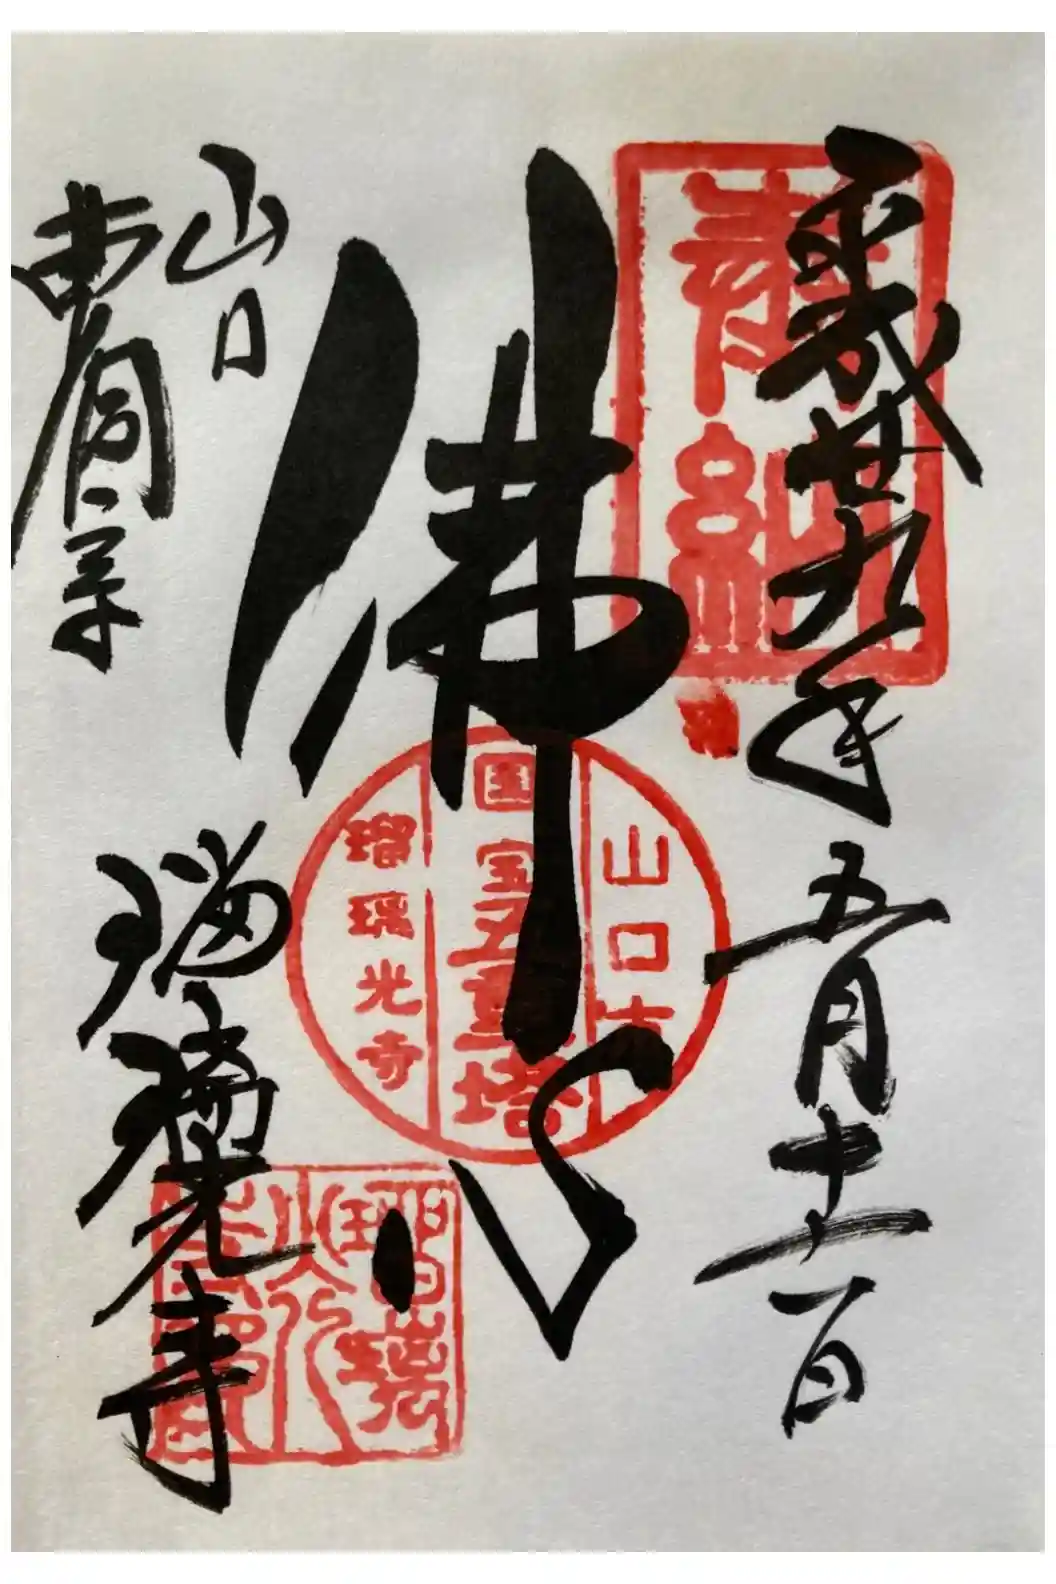 奉納
平成廿九年五月十二日
佛心
山口市
国宝五重塔
瑠璃光寺
山口
曹洞宗
瑠璃光寺